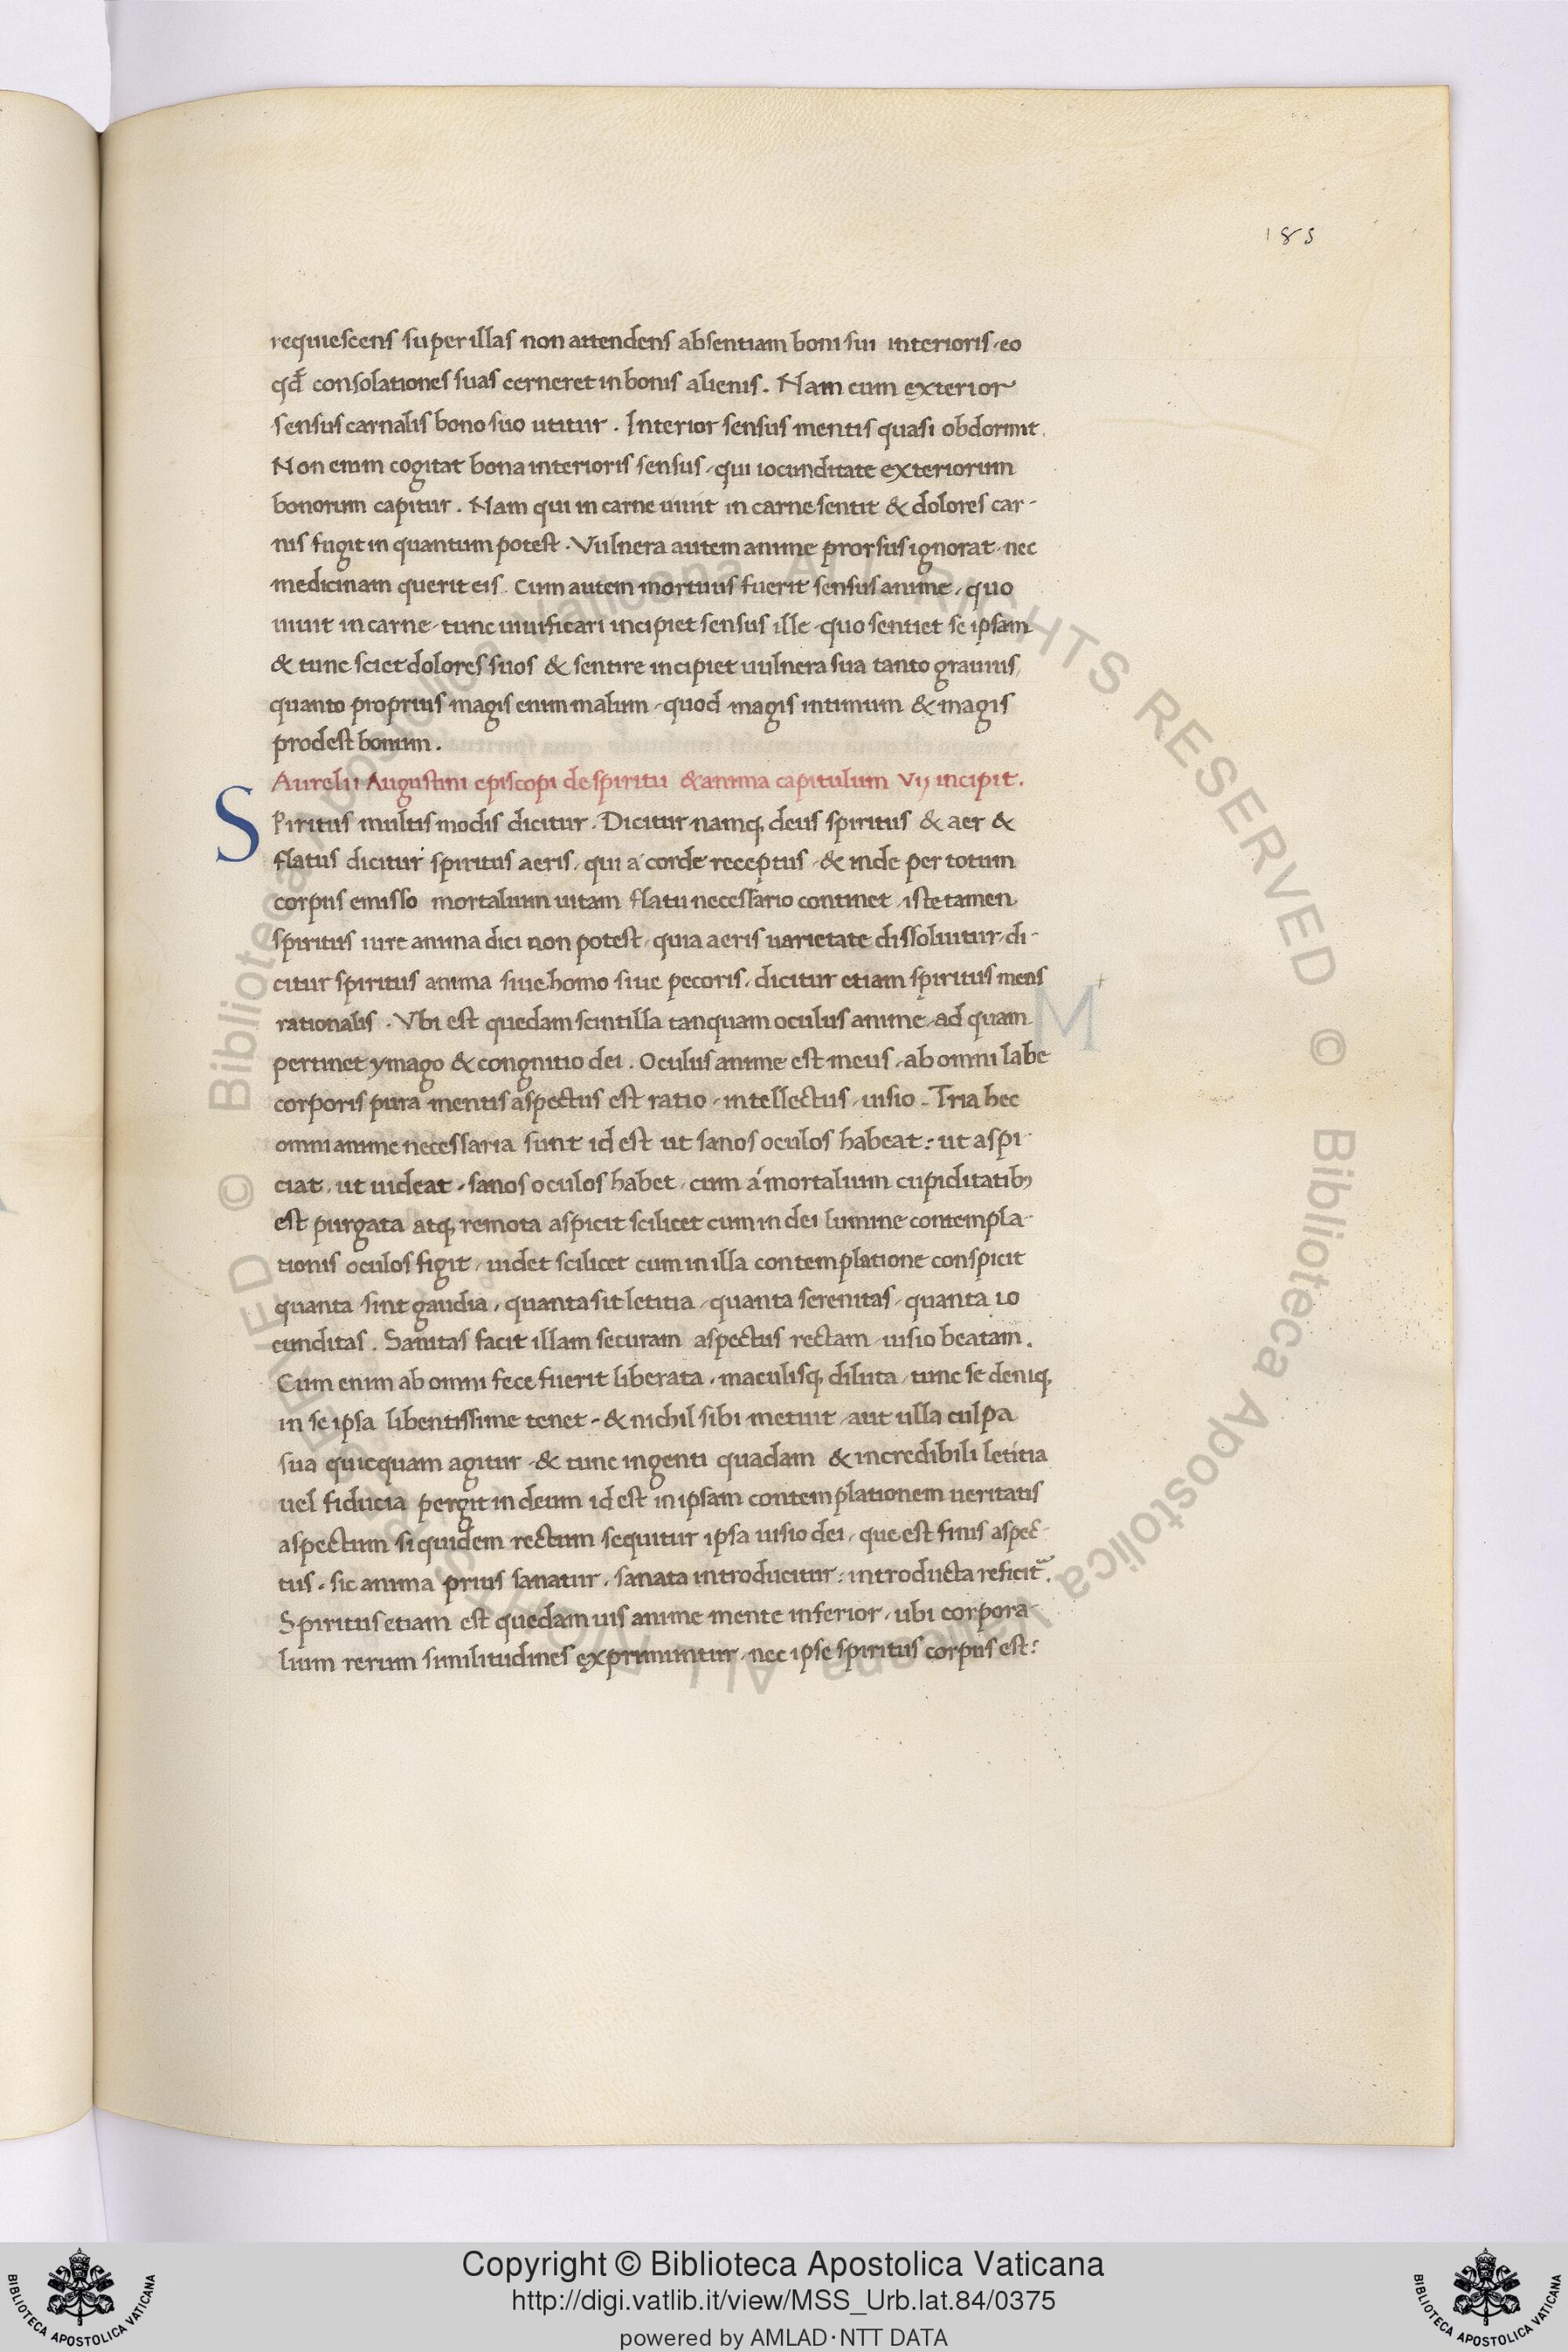 183
requiescens super illas non attendens absentiam boni sui interioris, eo
qđ consolationes suas cerneret in bonis alienis. Nam cum exterior
sensus carnalis bono suo utitur. Interior sensus mentis quasi obdormit.
Non enim cogitat bona interioris sensus, qui iocunditate exteriorum
bonorum capitur. Nam qui in carne uiuit in carne sentit & dolores car-
nis fugit in quantum potest. Vulnera autem anime prorsus ignorat, nec
medicinam querit eis. Cum autem mortuus fuerit sensus anime, quo
uiuit in carne, tunc uiuificari incipiet sensus ille, quo sentiet se ipsam
& tunc sciet dolores suos & sentire incipiet uulnera sua tanto grauius,
quanto proprius magis enim malum, quod magis intimum & magis
prodest bonum.
Aurelii Augustini episcopi de spiritu & anima capitulum Vij incipit.
SPiritus multis modis dicitur. Dicitur namq; deus spiritus & aer &
flatus dicitur spiritus aeris, qui a corde receptus, & inde per totum
corpus emisso mortalium uitam flatu necessario continet, iste tamen
spiritus iure anima dici non potest, quia aeris uarietate dissoluitur, di-
citur spiritus anima siue homo siue pecoris, dicitur etiam spiritus mens
rationalis. Vbi est quedam scintilla tanquam oculus anime, ad quam
pertinet ymago & congnitio dei. Oculus anime est meus, ab omni labe
corporis pura mentis aspectus est ratio, intellectus, uisio. Tria hec
omni anime necessaria sunt id est ut sanos oculos habeat: ut aspi-
ciat, ut uideat, sanos oculos habet, cum á mortalium cupiditatib;
est purgata atq; remota aspicit scilicet cum in dei lumine contempla-
tionis oculos figit, uidet scilicet cum in illa contemplatione conspicit
quanta sint gaudia, quanta sit letitia, quanta serenitas, quanta io
cunditas. Sanitas facit illam securam aspectus rectam, uisio beatam.
Cum enim ab omni fece fuerit liberata, maculisq; diluta, tunc se deniq;
in se ipsa libentissime tenet, & nichil sibi metuit, aut ulla culpa
sua quicquam agitur, & tunc ingenti quadam & incredibili letitia
uel fiducia pergit in deum id est in ipsam contemplationem ueritatis
aspectum siquidem rectum sequitur ipsa uisio dei, que est finis aspec-
tus, sic anima prius sanatur, sanata introducitur: introducta reficit᷑.
Spiritus etiam est quedam uis anime mente inferior, ubi corpora-
lium rerum similitudines exprimuntur, nec ipse spiritus corpus est:
© Biblioteca Apostolica Vaticana ALL RIGHTS RESERVED © Biblioteca Apostolica Vaticana ALL RIGHTS RESERVED
Copyright © Biblioteca Apostolica Vaticana
http://digi.vatlib.it/view/MSS_Urb.lat.84/0375
powered by AMLAD·NTT DATA
BIBLIOTECA APOSTOLICA VATICANA
BIBLIOTECA APOSTOLICA VATICANA